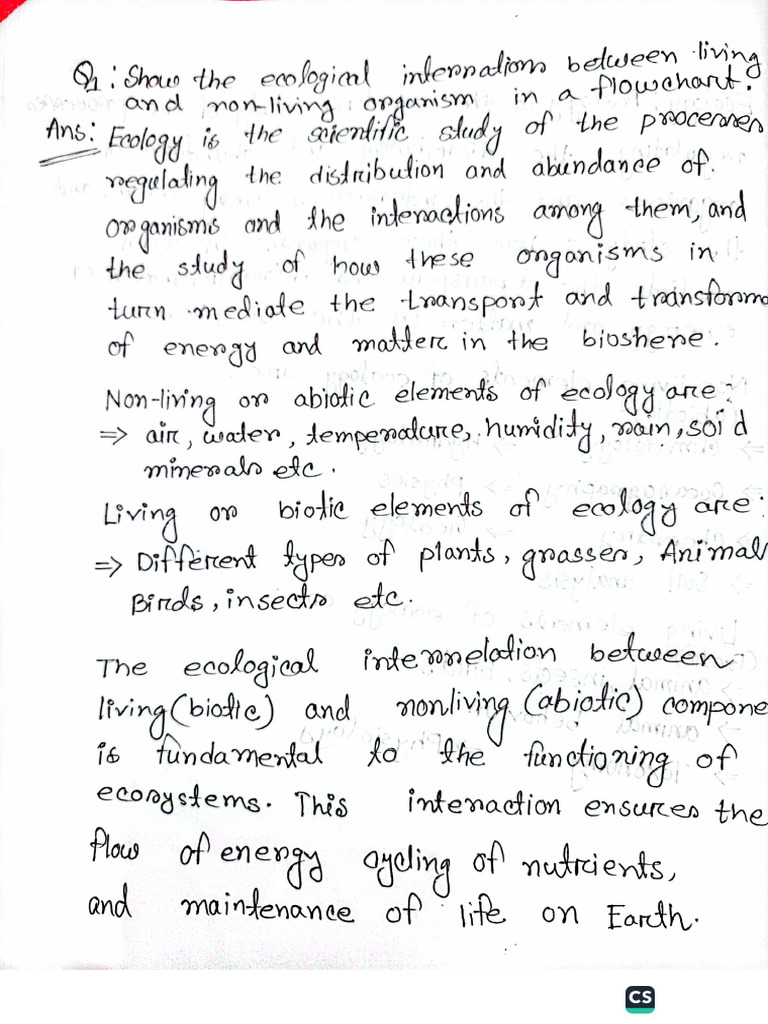 Q1: Show the ecological internations between living
and non-living organism in a flowchart.
Ans: Ecology is the scientific study of the processes
regulating the distribution and abundance of
organisms and the interactions among them, and
the study of how these organisms in
turn mediate the transport and transforma
of energy and matter in the bioshere.
Non-living or abiotic elements of ecology are:
=> air, water, temperature, humidity, rain, soi d
minerals etc.
Living or biotic elements of ecology are:
=> Different types of plants, grasses, Animal
Birds, insects etc.
The ecological interrelation between
living(biotic) and nonliving (abiotic) compone
is fundamental to the functioning of
ecosystems. This interaction ensures the
flow of energy cycling of nutrients,
and maintenance of life on Earth.
CS